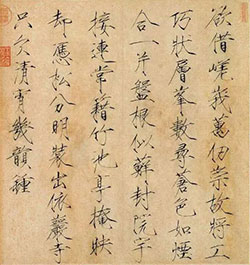 欲借嵯峨萬仞崇故將工
巧狀層峯數尋蒼色如煙
合一片盤根似蘚封院宇
接連常藉竹池亭掩映
却應松分明裝出依巖寺
只欠清宵幾韻鍾